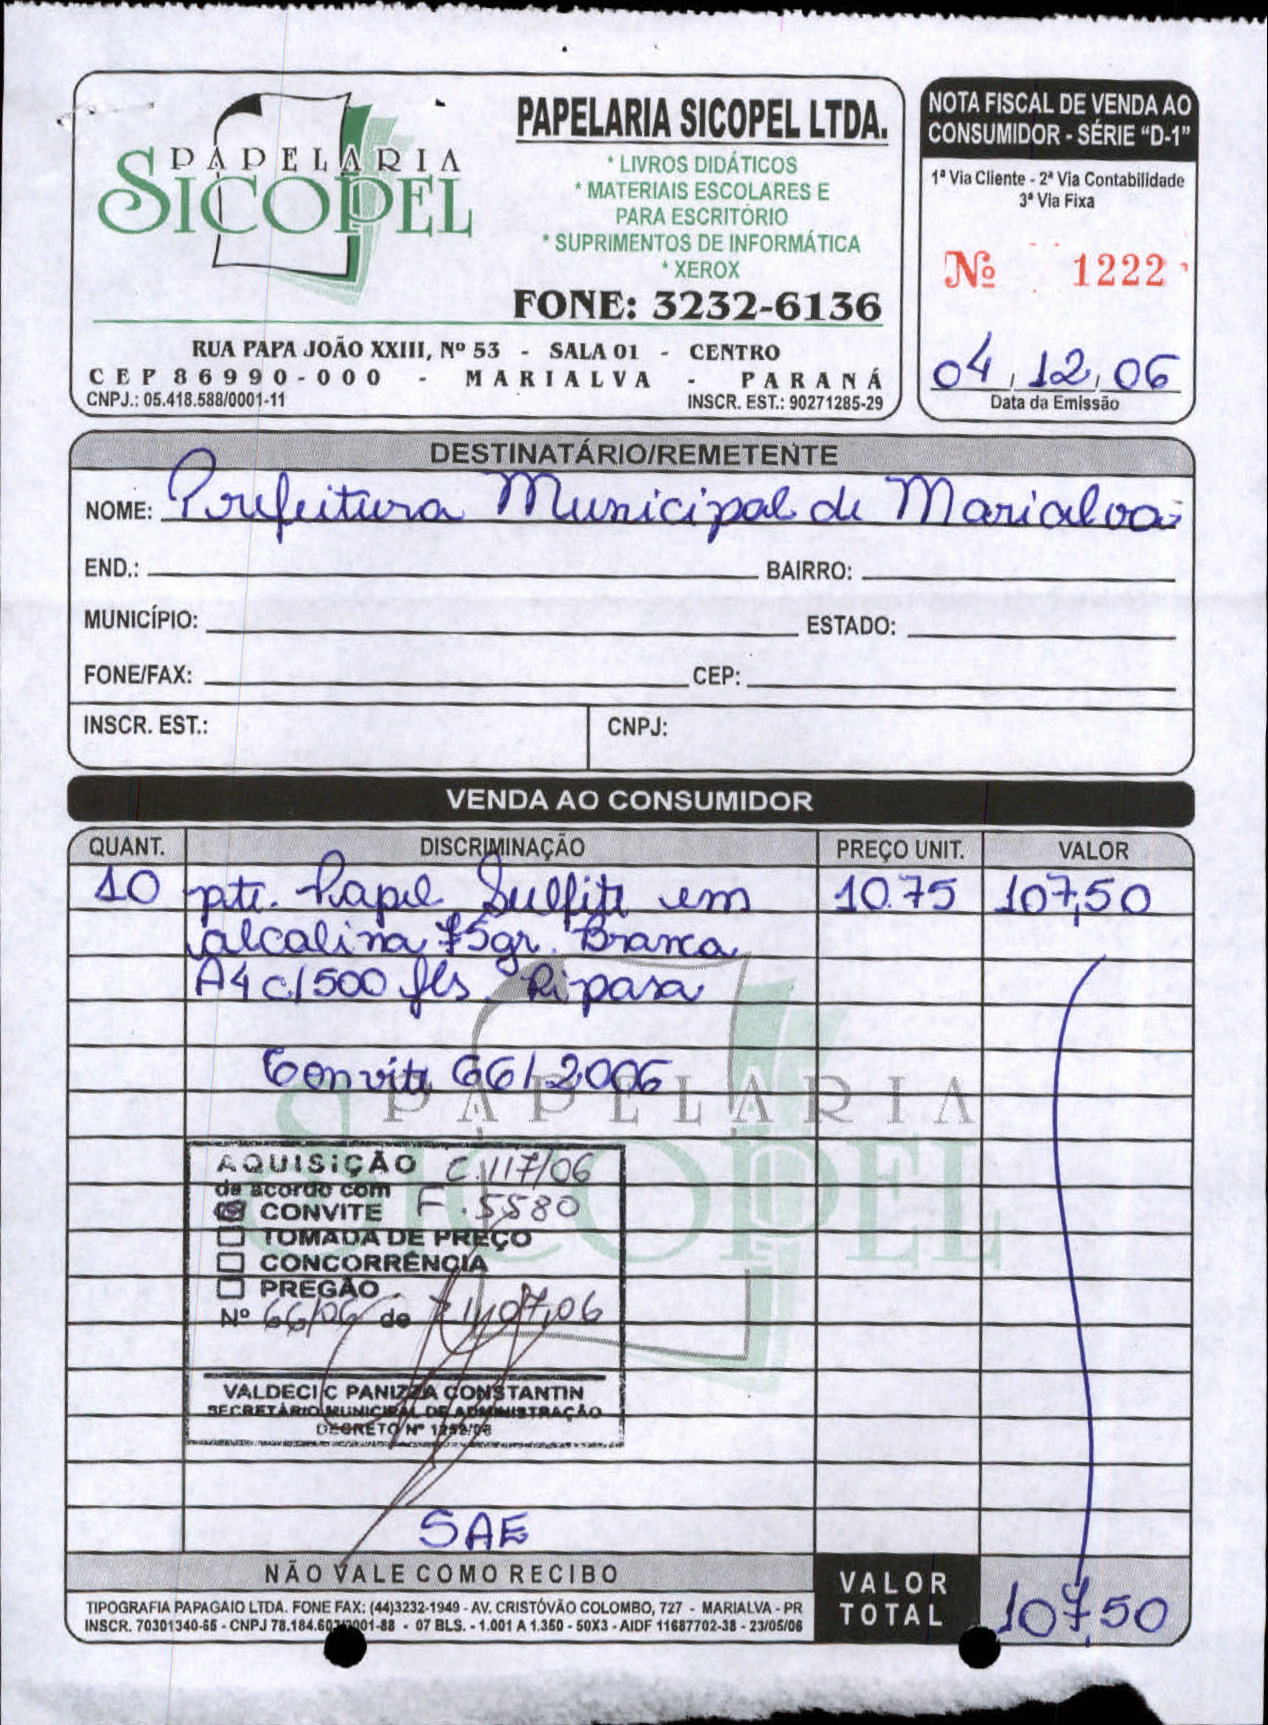 PAPELARIA
SICOPEL
PAPELARIA SICOPEL LTDA.
* LIVROS DIDÁTICOS
* MATERIAIS ESCOLARES E
PARA ESCRITÓRIO
* SUPRIMENTOS DE INFORMÁTICA
* XEROX
FONE: 3232-6136
RUA PAPA JOÃO XXIII, Nº 53 - SALA 01 - CENTRO
CEP 86990-000 - MARIALVA - PARANÁ
CNPJ.: 05.418.588/0001-11 INSCR. EST.: 90271285-29
NOTA FISCAL DE VENDA AO
CONSUMIDOR - SÉRIE "D-1"
1ª Via Cliente - 2ª Via Contabilidade
3ª Via Fixa
Nº 1222
04, 12, 06
Data da Emissão
DESTINATÁRIO/REMETENTE
NOME: Prefeitura Municipal de Marialva
END.: BAIRRO:
MUNICÍPIO: ESTADO:
FONE/FAX: CEP:
INSCR. EST.: CNPJ:
VENDA AO CONSUMIDOR
QUANT. DISCRIMINAÇÃO PREÇO UNIT. VALOR
10 pte. Papel Sulfite em 10.75 107,50
alcalina 75gr. Branca
A4 c/500 fls. Ripasa
Convite 66/2006
PAPELARIA
SICOPEL
AQUISIÇÃO C. 117/06
de acordo com
CONVITE F. 5580
TOMADA DE PREÇO
CONCORRÊNCIA
PREGÃO
Nº 66/06 de 07,06
VALDECI C PANIZZA CONSTANTIN
SECRETÁRIO MUNICIPAL DE ADMINISTRAÇÃO
DECRETO Nº
SAE
NÃO VALE COMO RECIBO
VALOR
TOTAL 107,50
TIPOGRAFIA PAPAGAIO LTDA. FONE FAX: (44)3232-1949 - AV. CRISTÓVÃO COLOMBO, 727 - MARIALVA - PR
INSCR. 70301340-65 - CNPJ - 07 BLS. - 1.001 A 1.350 - 50X3 - AIDF 11687702-38 - 23/05/06